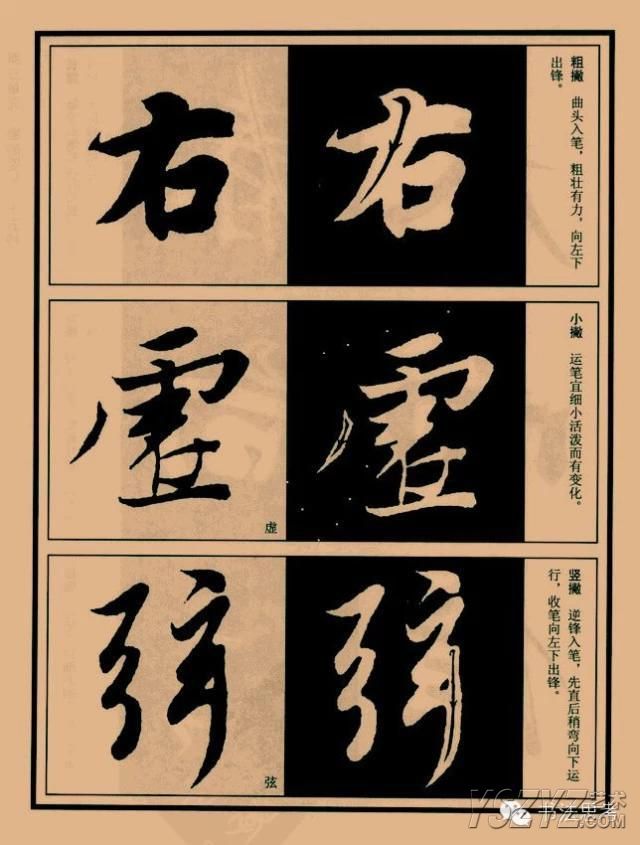 粗撇　曲头入笔，粗壮有力，向左下
出锋。
右
右
小撇　运笔宜细小活泼而有变化。
虚
虚
虚
竖撇　逆锋入笔，先直后稍弯向下运
行，收笔向左下出锋。
弦
弦
弦
YSZYZ艺术
书法思考